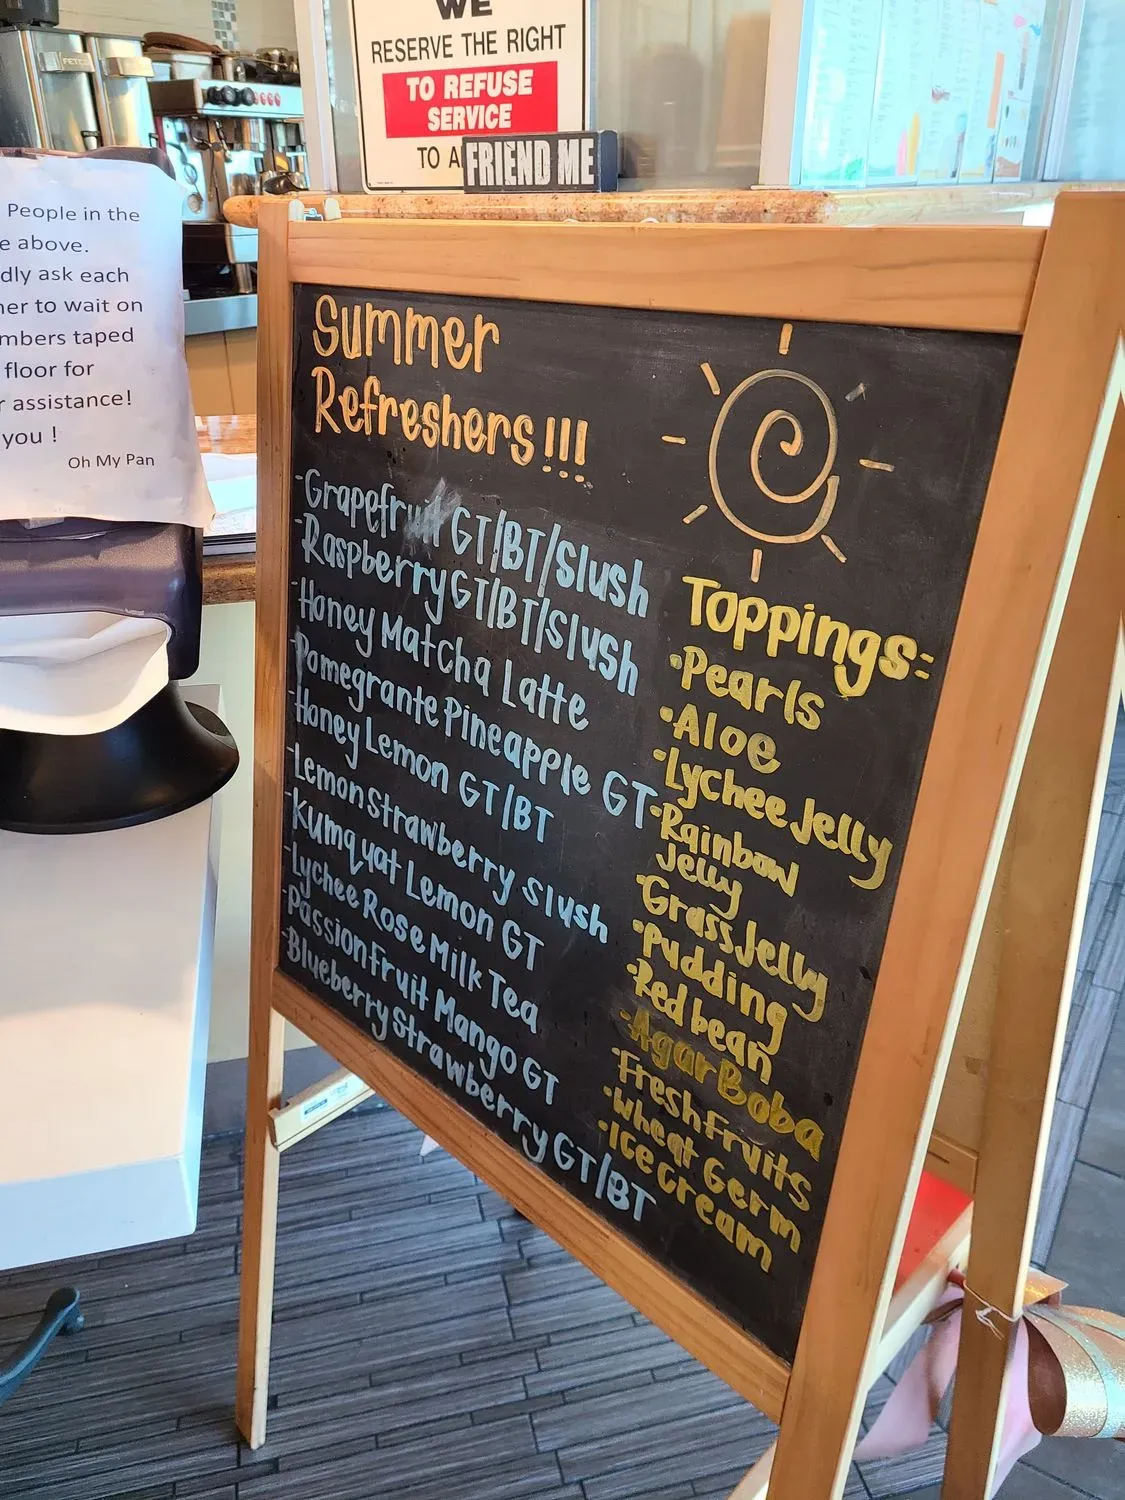 WE
RESERVE THE RIGHT
TO REFUSE
SERVICE
TO A
FRIEND ME
FETCO
People in the
e above.
dly ask each
er to wait on
mbers taped
floor for
r assistance!
you !
Oh My Pan
Summer
Refreshers!!!
-Grapefruit GT/BT/Slush
-Raspberry GT/BT/Slush
-Honey Matcha Latte
-Pomegrante Pineapple GT
-Honey Lemon GT/BT
-Lemon Strawberry Slush
-Kumquat Lemon GT
-Lychee Rose Milk Tea
-Passionfruit Mango GT
-Blueberry Strawberry GT/BT
Toppings:
•Pearls
•Aloe
•Lychee Jelly
•Rainbow
Jelly
•Grass Jelly
•Pudding
•Red bean
•Agar Boba
•Fresh Fruits
•Wheat Germ
•Ice Cream